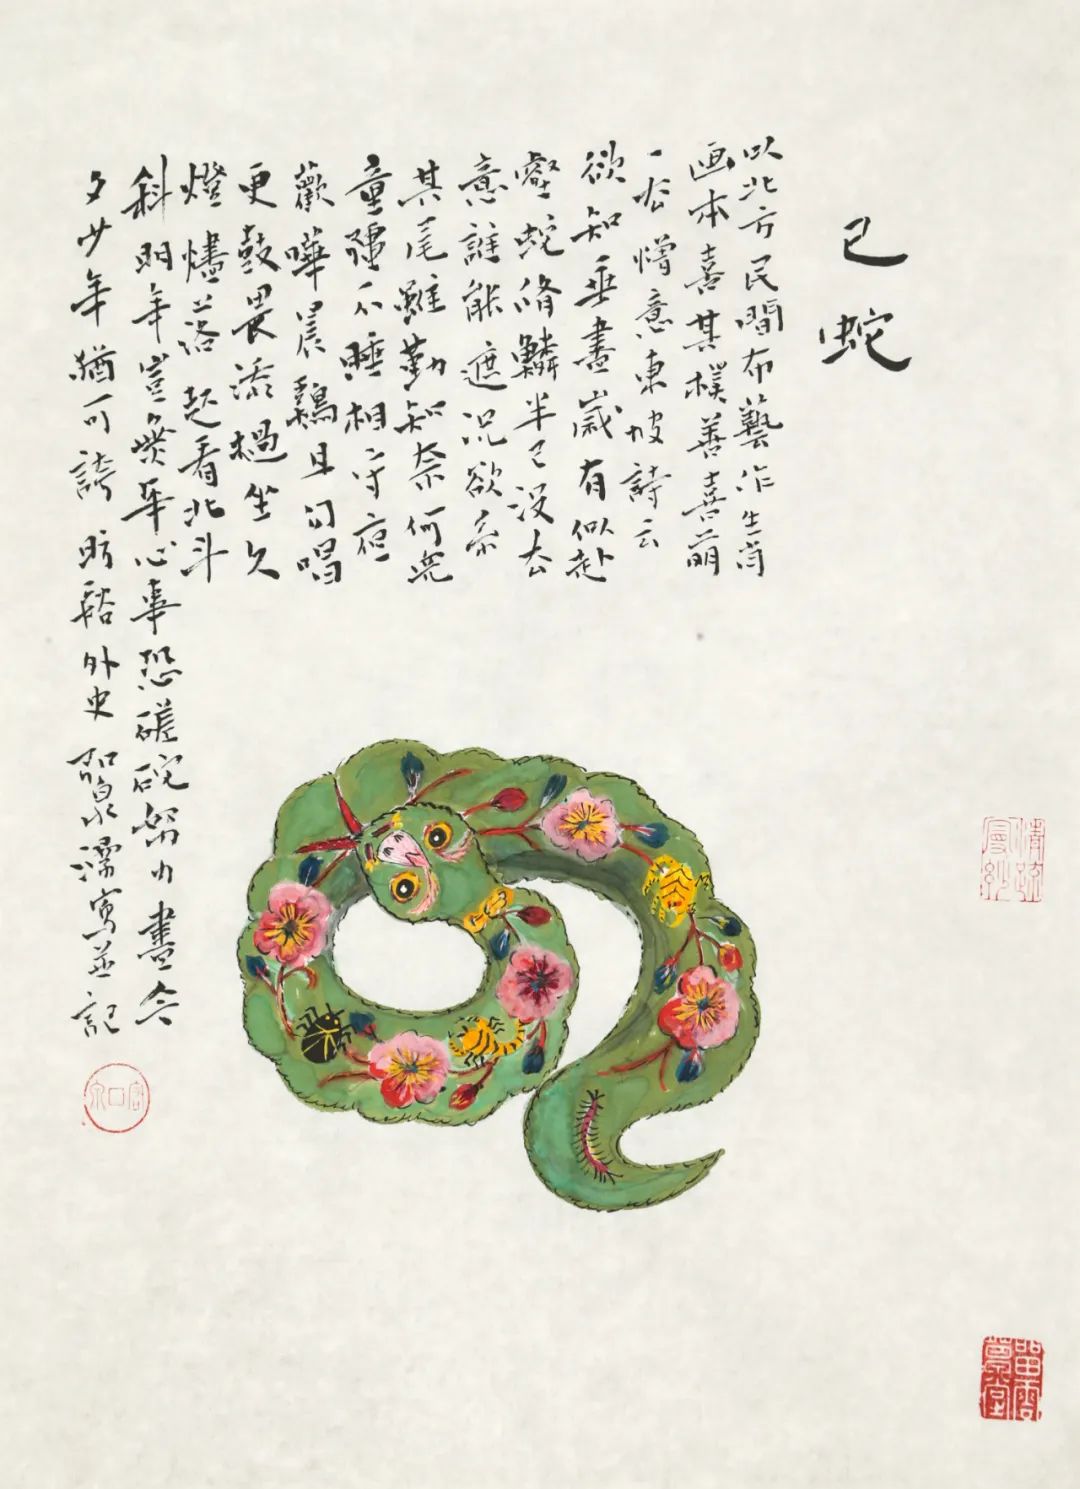 巳蛇
以北方民間布藝作生肖
画本喜其樸善喜萌
一 懵意東坡詩云
欲知垂盡歲有似赴
壑蛇脩鱗半已没去
意誰能遮況欲系
其尾雖勤知奈何児
童強不睡相守夜
歡嘩晨鷄且勿唱
更鼓畏添撾坐久
燈燼落起看北斗
斜明年豈無年心事恐蹉跎努力盡今
夕少年猶可誇 昉谿外史 寫並記